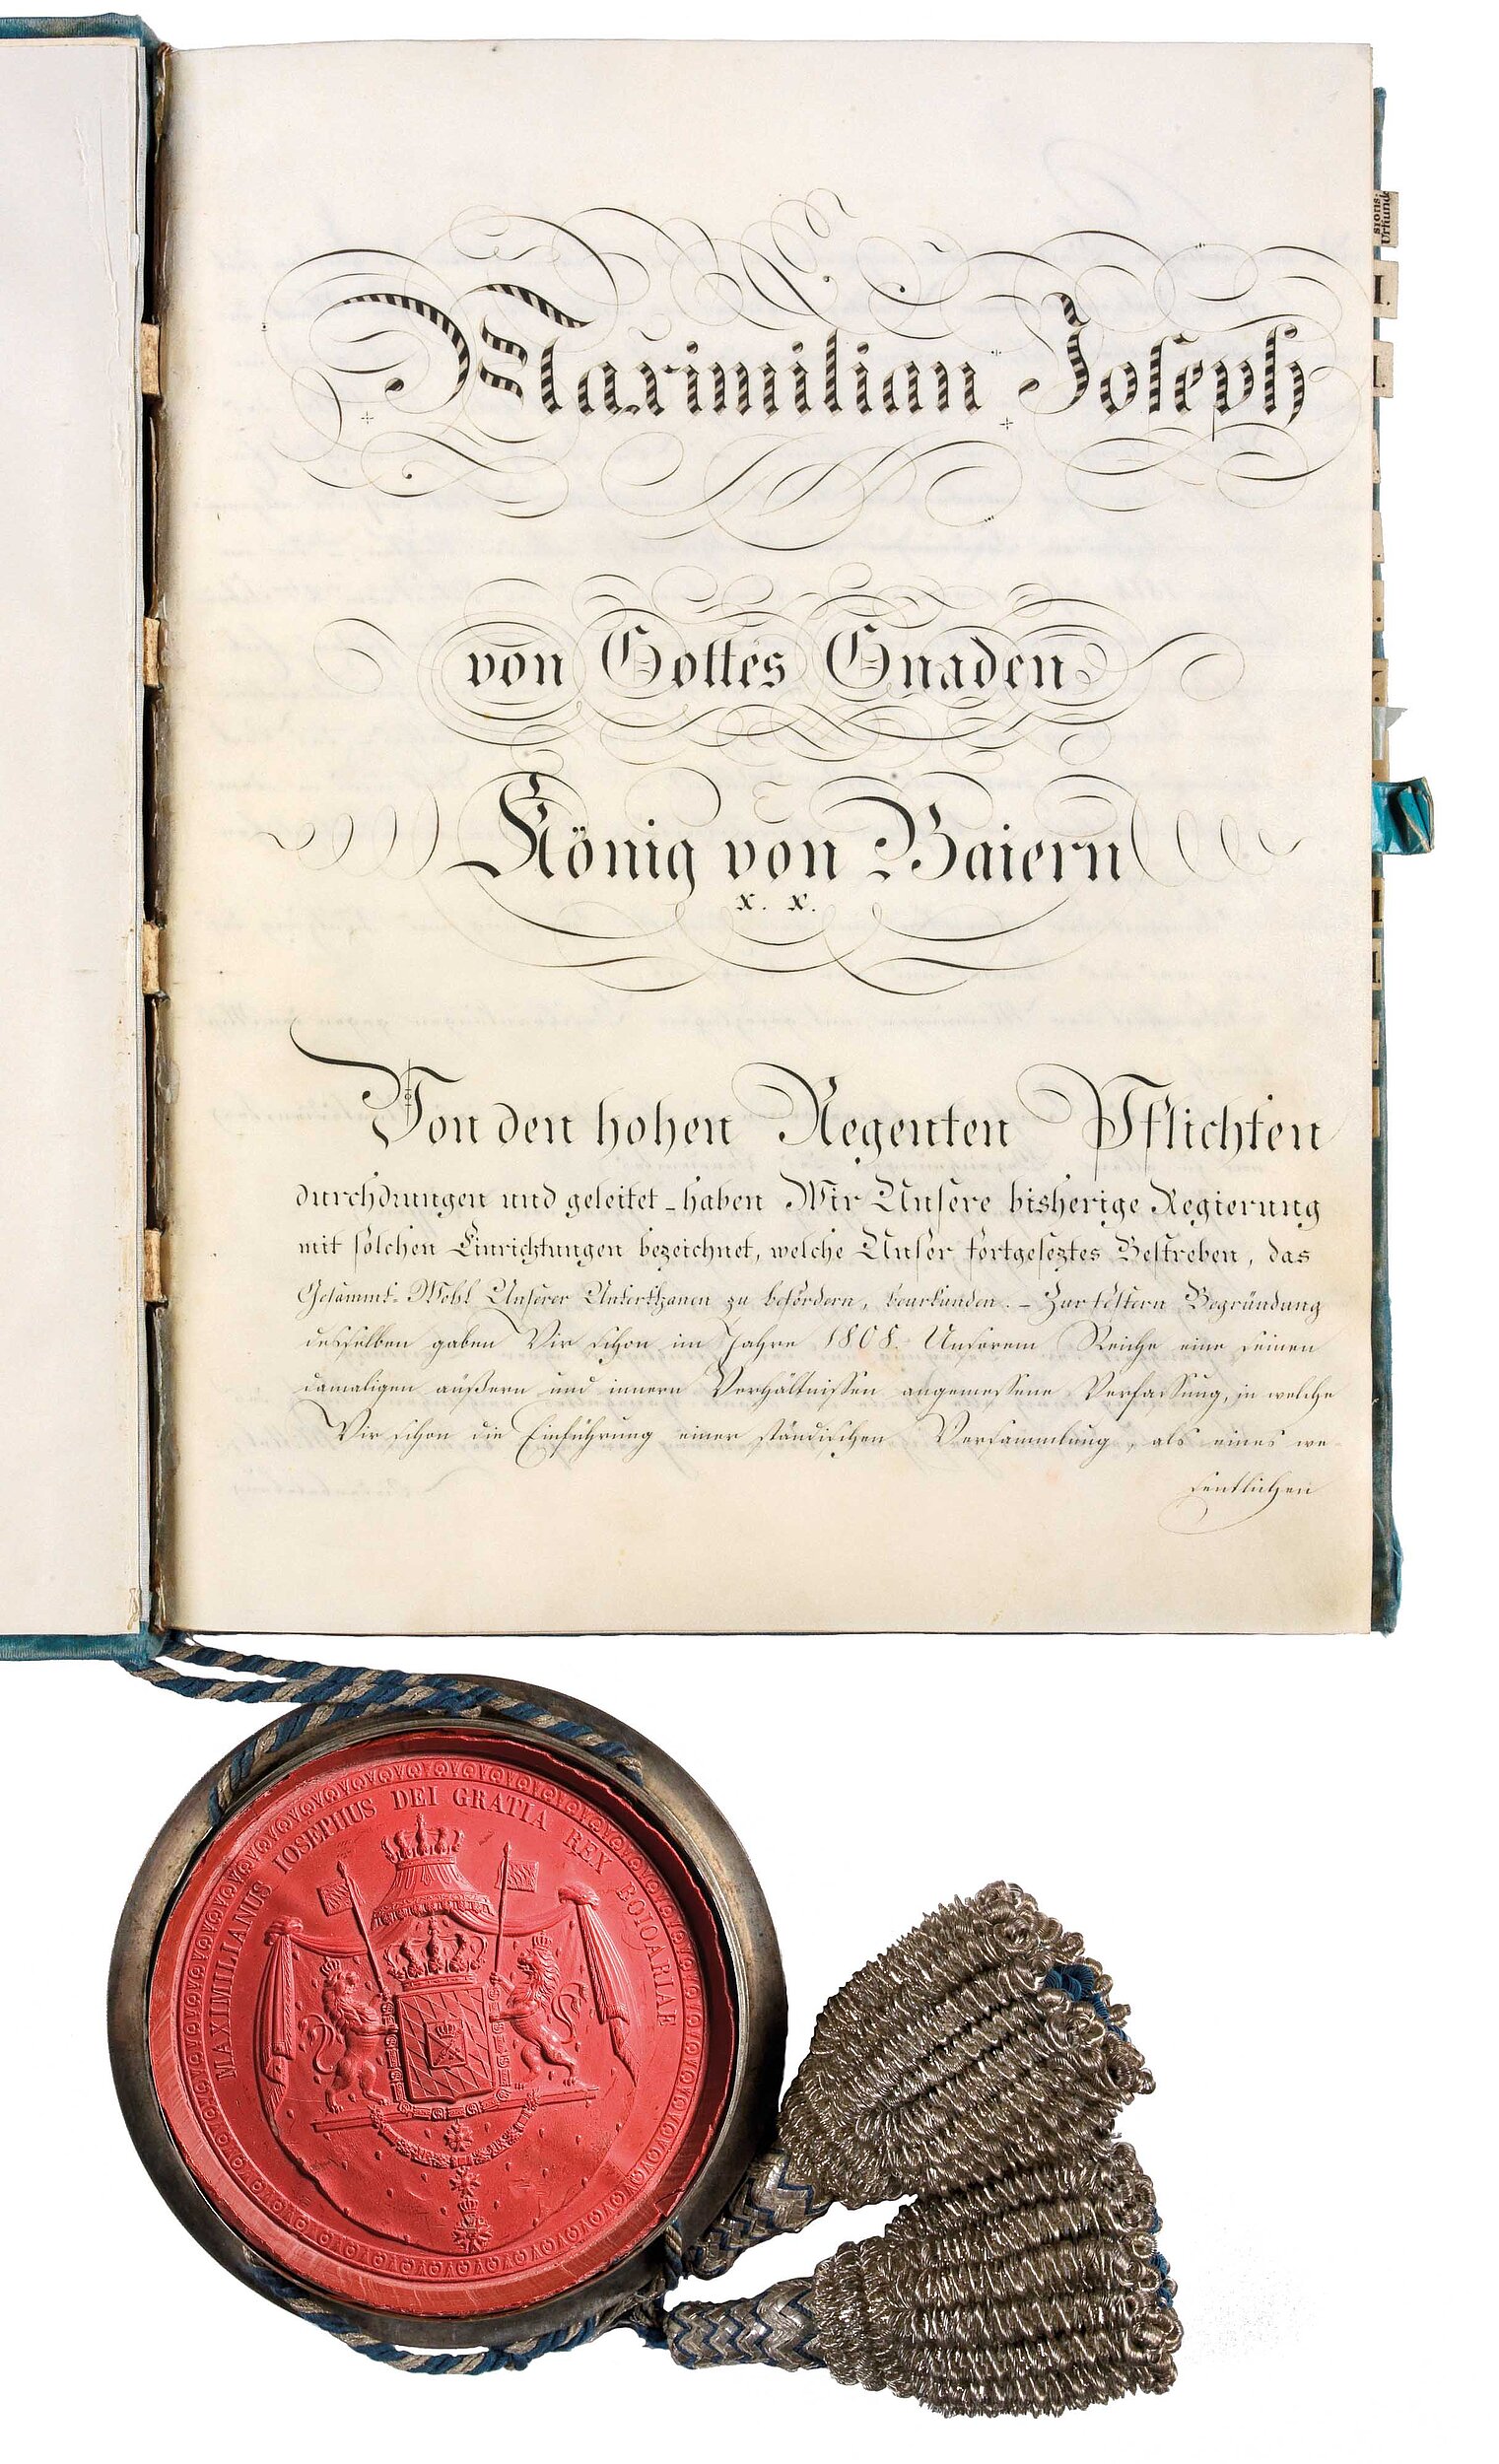 Maximilian Joseph
von Gottes Gnaden
König von Baiern
x. x.
Von den hohen Regenten Pflichten
durchdrungen und geleitet - haben Wir Unsere bisherige Regierung
mit solchen Einrichtungen bezeichnet, welche Unser fortgeseztes Bestreben, das
Gesammt-Wohl Unserer Unterthanen zu befördern, beurkunden. - Zur festern Begründung
desselben gaben Wir schon im Jahre 1808. Unserem Reiche eine seinen
damaligen äußern und innern Verhältnissen angemessene Verfassung, in welche
Wir schon die Einführung einer ständischen Versammlung, als eines we-
sentlichen
sions-
Urkunde
I.
I.
MAXIMILIANUS IOSEPHUS DEI GRATIA REX BOIOARIAE